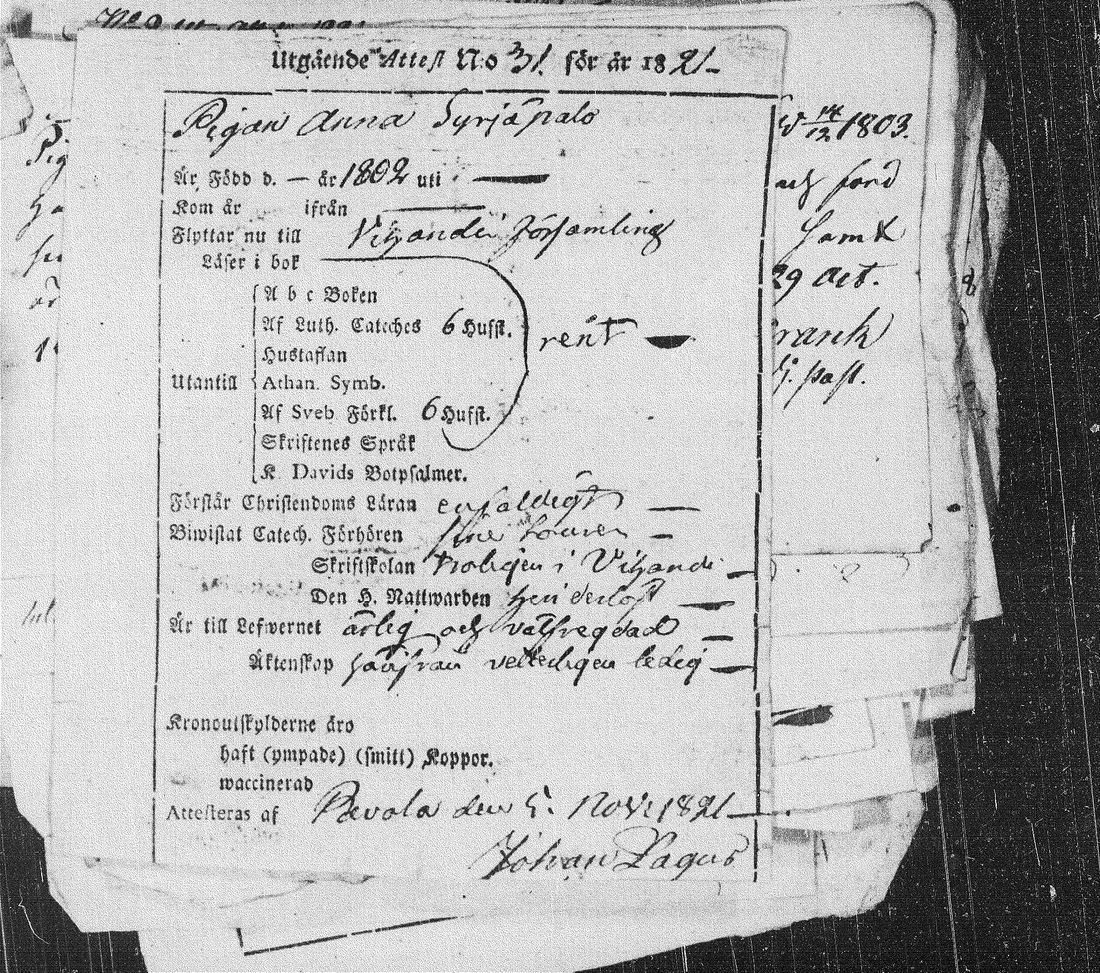 Utgående Attest No 31. för år 1821
Pigan Anna Syrjäpalo
Är Född d. — år 1802 uti
Kom år ifrån
Flyttar nu till Vihandi församling
Läser i bok
A b c Boken
Af Luth. Cateches 6 Hufst.
rent
Hustaflan
Utantill
Athan. Symb.
Af Sveb Förkl. 6 Hufst.
Skriftenes Språk
K. Davids Botpsalmer.
Förstår Christendoms Läran enfaldigt
Biwistat Catech. Förhören
Skriftskolan troligen i Vihandi
Den H. Nattwarden
Är till Lefwernet ärlig och välfregdad
Äktenskap ledig
Kronoutskylderne äro
haft (ympade) (smitt) Koppor.
waccinerad
Attesteras af Revola den 5. Nov. 1821
Johan Lagus
14/12 1803.
och
29 Oct.
past.